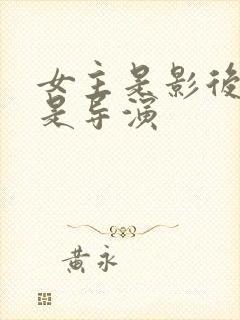 女主是影後
是导演
黄永